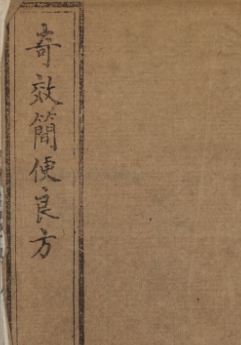 奇效簡便良方